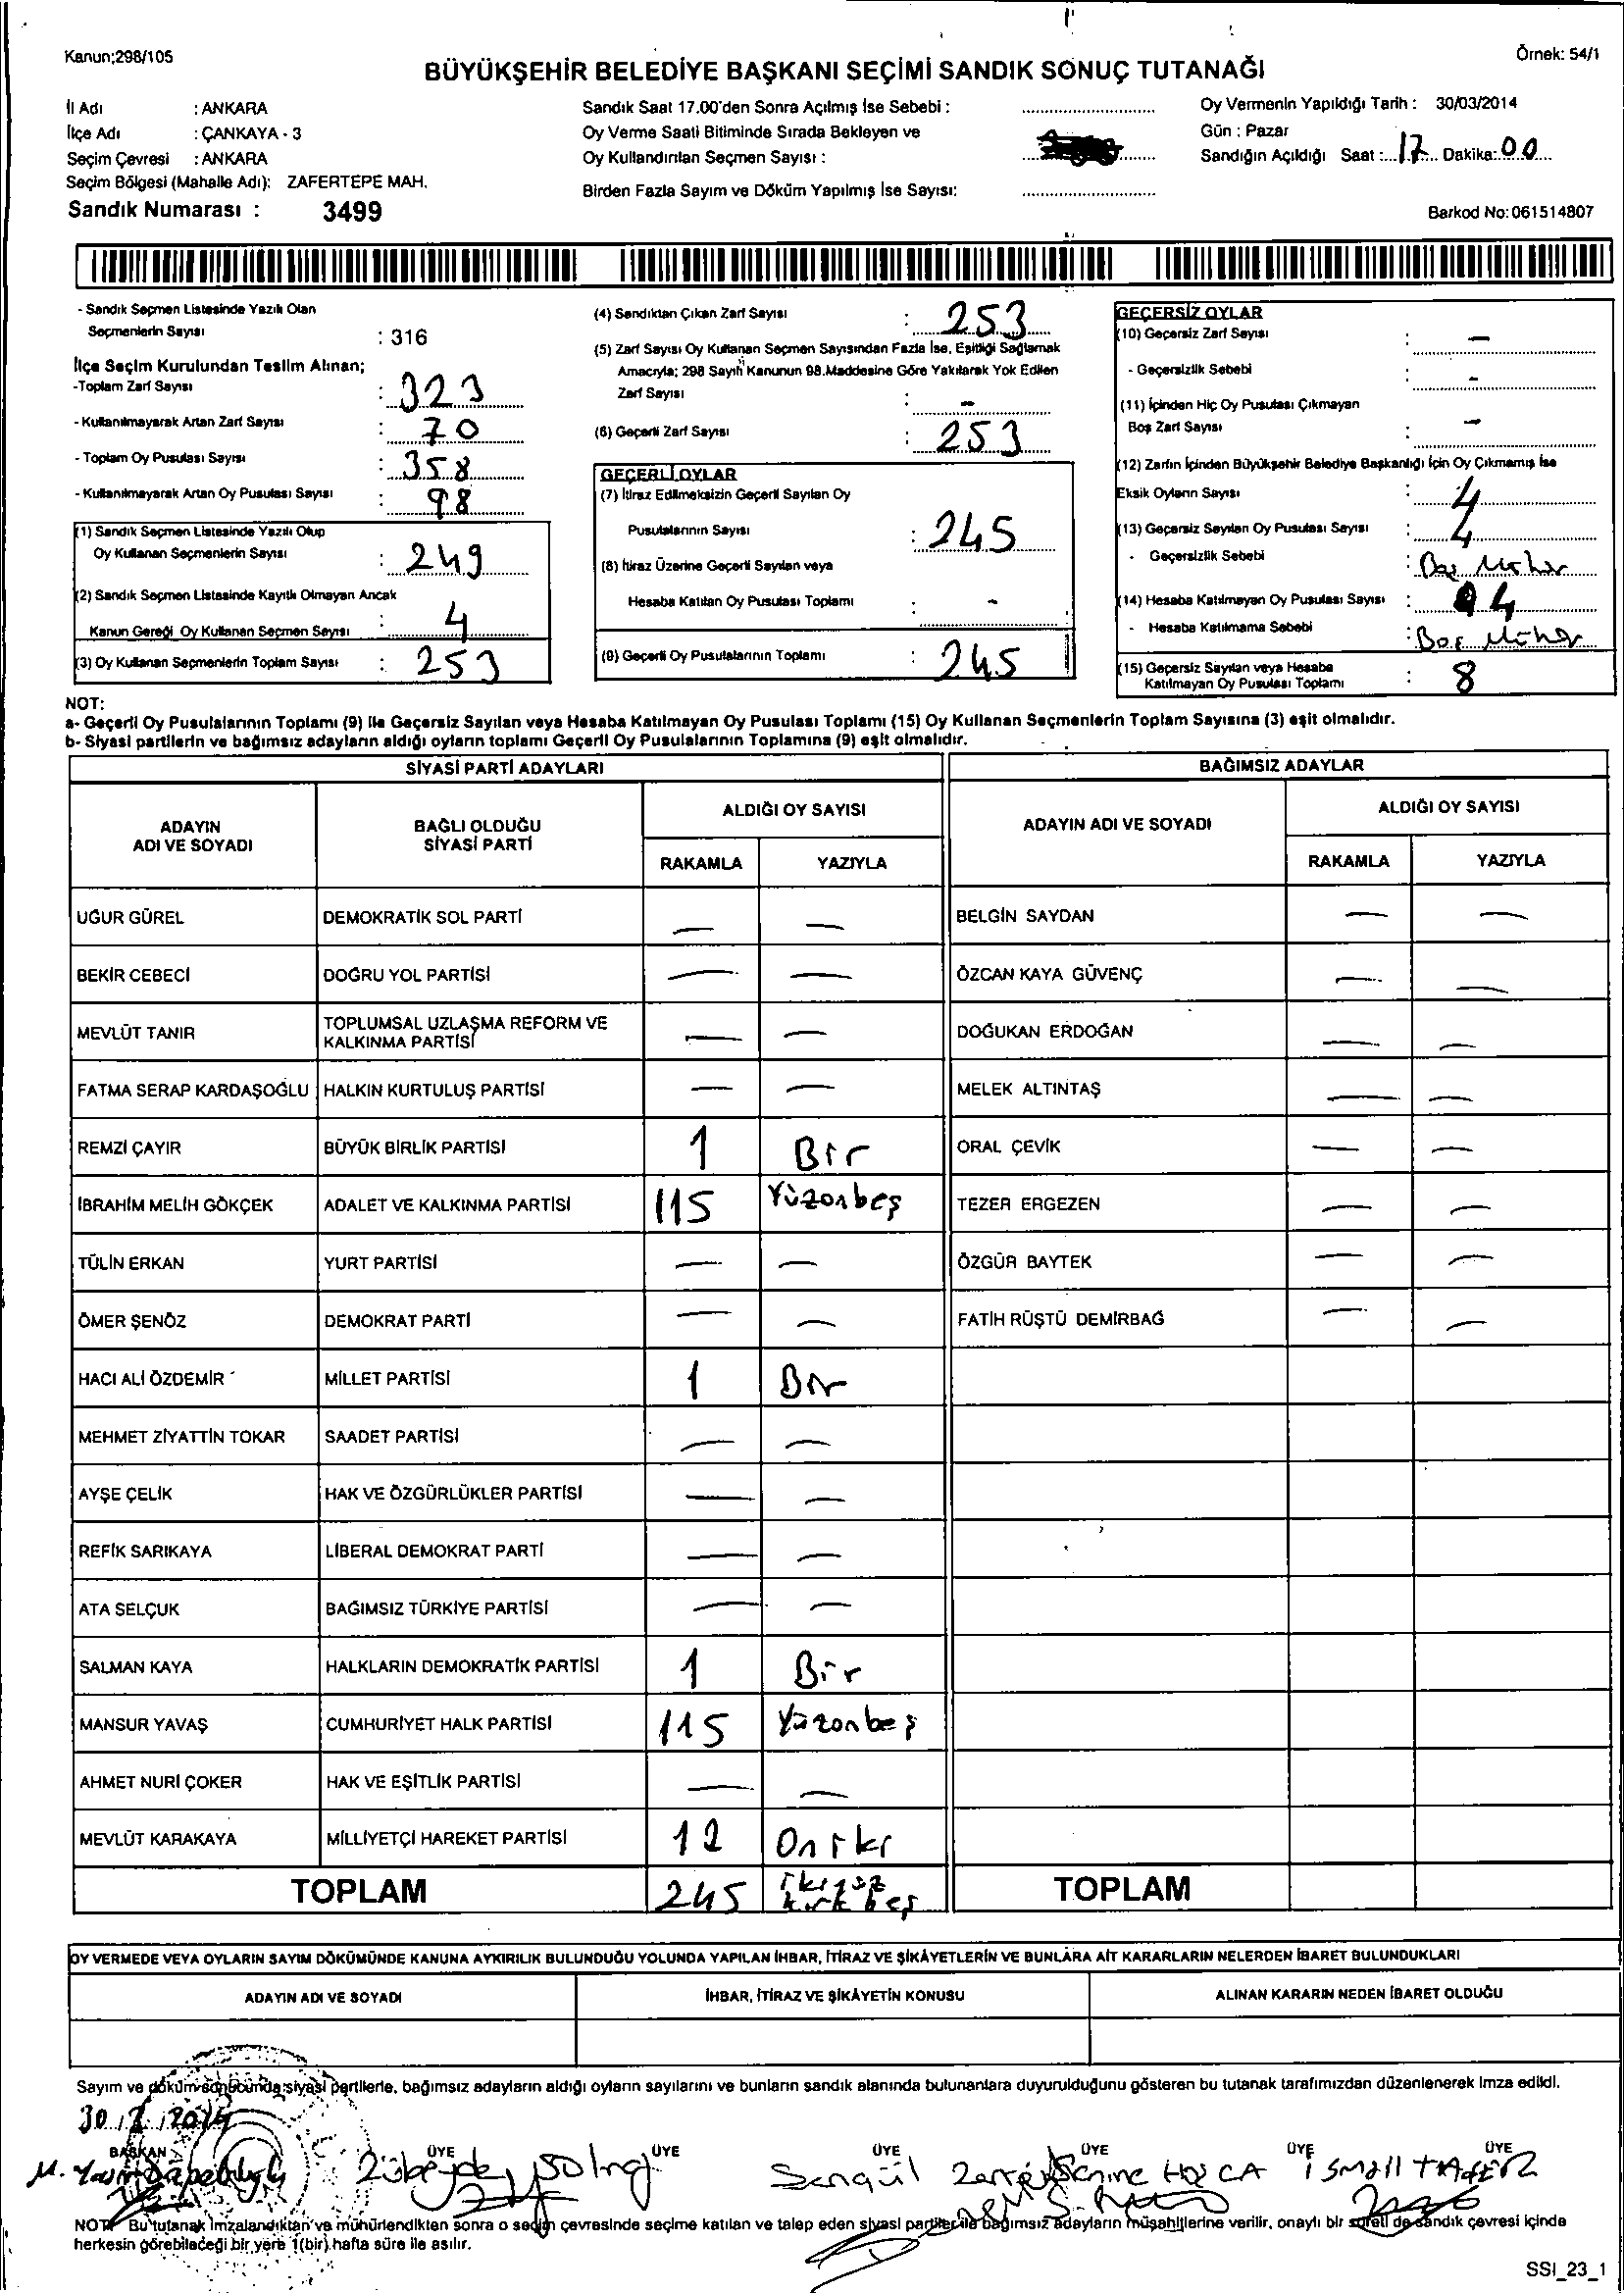 Kanun;298/105
Örnek: 54/1
BÜYÜKŞEHİR BELEDİYE BAŞKANI SEÇİMİ SANDIK SONUÇ TUTANAĞI
İl Adı : ANKARA
İlçe Adı : ÇANKAYA - 3
Seçim Çevresi : ANKARA
Seçim Bölgesi (Mahalle Adı): ZAFERTEPE MAH.
Sandık Numarası : 3499
Sandık Saat 17.00'den Sonra Açılmış İse Sebebi :
Oy Verme Saati Bitiminde Sırada Bekleyen ve
Oy Kullandırılan Seçmen Sayısı :
Birden Fazla Sayım ve Döküm Yapılmış İse Sayısı:
Oy Vermenin Yapıldığı Tarih : 30/03/2014
Gün : Pazar
Sandığın Açıldığı Saat : 17 Dakika: 00
Barkod No:061514807
- Sandık Seçmen Listesinde Yazılı Olan
Seçmenlerin Sayısı : 316
İlçe Seçim Kurulundan Teslim Alınan;
-Toplam Zarf Sayısı : 323
- Kullanılmayarak Artan Zarf Sayısı : 70
- Toplam Oy Pusulası Sayısı : 358
- Kullanılmayarak Artan Oy Pusulası Sayısı : 98
(1) Sandık Seçmen Listesinde Yazılı Olup
Oy Kullanan Seçmenlerin Sayısı : 249
(2) Sandık Seçmen Listesinde Kayıtlı Olmayan Ancak
Kanun Gereği Oy Kullanan Seçmen Sayısı : 4
(3) Oy Kullanan Seçmenlerin Toplam Sayısı : 253
(4) Sandıktan Çıkan Zarf Sayısı : 253
(5) Zarf Sayısı Oy Kullanan Seçmen Sayısından Fazla İse, Eşitliği Sağlamak
Amacıyla; 298 Sayılı Kanunun 98.Maddesine Göre Yakılarak Yok Edilen
Zarf Sayısı : -
(6) Geçerli Zarf Sayısı : 253
GEÇERLİ OYLAR
(7) İtiraz Edilmeksizin Geçerli Sayılan Oy
Pusulalarının Sayısı : 245
(8) İtiraz Üzerine Geçerli Sayılan veya
Hesaba Katılan Oy Pusulası Toplamı : -
(9) Geçerli Oy Pusulalarının Toplamı : 245
GEÇERSİZ OYLAR
(10) Geçersiz Zarf Sayısı : -
- Geçersizlik Sebebi : -
(11) İçinden Hiç Oy Pusulası Çıkmayan
Boş Zarf Sayısı : -
(12) Zarfın İçinden Büyükşehir Belediye Başkanlığı İçin Oy Çıkmamış İse
Eksik Oyların Sayısı : 4
(13) Geçersiz Sayılan Oy Pusulası Sayısı : 4
- Geçersizlik Sebebi : Boş Mühür
(14) Hesaba Katılmayan Oy Pusulası Sayısı : 4
- Hesaba Katılmama Sebebi : Boş Mühür
(15) Geçersiz Sayılan veya Hesaba
Katılmayan Oy Pusulası Toplamı : 8
NOT:
a- Geçerli Oy Pusulalarının Toplamı (9) ile Geçersiz Sayılan veya Hesaba Katılmayan Oy Pusulası Toplamı (15) Oy Kullanan Seçmenlerin Toplam Sayısına (3) eşit olmalıdır.
b- Siyasi partilerin ve bağımsız adayların aldığı oyların toplamı Geçerli Oy Pusulalarının Toplamına (9) eşit olmalıdır.
SİYASİ PARTİ ADAYLARI BAĞIMSIZ ADAYLAR
ADAYIN ADI VE SOYADI BAĞLI OLDUĞU SİYASİ PARTİ ALDIĞI OY SAYISI ADAYIN ADI VE SOYADI ALDIĞI OY SAYISI
RAKAMLA YAZIYLA RAKAMLA YAZIYLA
UĞUR GÜREL DEMOKRATİK SOL PARTİ — — BELGİN SAYDAN — —
BEKİR CEBECİ DOĞRU YOL PARTİSİ — — ÖZCAN KAYA GÜVENÇ — —
MEVLÜT TANIR TOPLUMSAL UZLAŞMA REFORM VE KALKINMA PARTİSİ — — DOĞUKAN ERDOĞAN — —
FATMA SERAP KARDAŞOĞLU HALKIN KURTULUŞ PARTİSİ — — MELEK ALTINTAŞ — —
REMZİ ÇAYIR BÜYÜK BİRLİK PARTİSİ 1 Bir ORAL ÇEVİK — —
İBRAHİM MELİH GÖKÇEK ADALET VE KALKINMA PARTİSİ 115 Yüzonbeş TEZER ERGEZEN — —
TÜLİN ERKAN YURT PARTİSİ — — ÖZGÜR BAYTEK — —
ÖMER ŞENÖZ DEMOKRAT PARTİ — — FATİH RÜŞTÜ DEMİRBAĞ — —
HACI ALİ ÖZDEMİR MİLLET PARTİSİ 1 Bir
MEHMET ZİYATTİN TOKAR SAADET PARTİSİ — —
AYŞE ÇELİK HAK VE ÖZGÜRLÜKLER PARTİSİ — —
REFİK SARIKAYA LİBERAL DEMOKRAT PARTİ — —
ATA SELÇUK BAĞIMSIZ TÜRKİYE PARTİSİ — —
SALMAN KAYA HALKLARIN DEMOKRATİK PARTİSİ 1 Bir
MANSUR YAVAŞ CUMHURİYET HALK PARTİSİ 115 Yüzonbeş
AHMET NURİ ÇOKER HAK VE EŞİTLİK PARTİSİ — —
MEVLÜT KARAKAYA MİLLİYETÇİ HAREKET PARTİSİ 12 On iki
TOPLAM 245 ikiyüz kırkbeş TOPLAM
OY VERMEDE VEYA OYLARIN SAYIM DÖKÜMÜNDE KANUNA AYKIRILIK BULUNDUĞU YOLUNDA YAPILAN İHBAR, İTİRAZ VE ŞİKÂYETLERİN VE BUNLARA AİT KARARLARIN NELERDEN İBARET BULUNDUKLARI
ADAYIN ADI VE SOYADI İHBAR, İTİRAZ VE ŞİKÂYETİN KONUSU ALINAN KARARIN NEDEN İBARET OLDUĞU
Sayım ve döküm sonucunda siyasi partilerle, bağımsız adayların aldığı oyların sayılarını ve bunların sandık alanında bulunanlara duyurulduğunu gösteren bu tutanak tarafımızdan düzenlenerek imza edildi.
BAŞKAN ÜYE ÜYE ÜYE ÜYE ÜYE ÜYE
Zübeyde Şengül HOCA ismail
NOT: Bu tutanak imzalandıktan ve mühürlendikten sonra o seçim çevresinde seçime katılan ve talep eden siyasi partiler ile bağımsız adayların müşahitlerine verilir, onaylı bir sureti de sandık çevresi içinde
herkesin görebileceği bir yere 1(bir) hafta süre ile asılır.
SSI_23_1